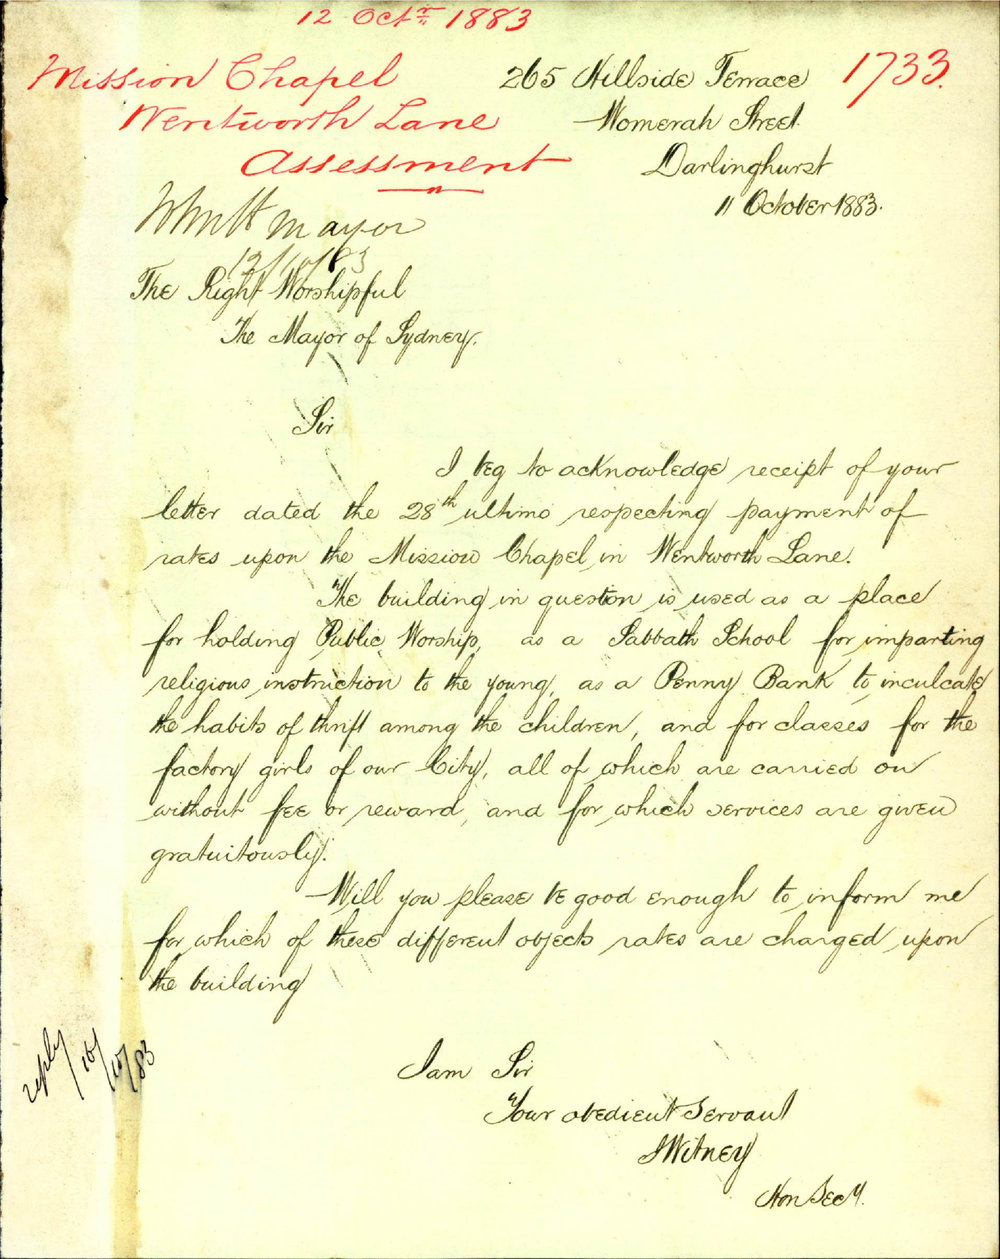 12 Octr 1883
Mission Chapel
Wentworth Lane
Assessment
1733.
265 Hillside Terrace
Womerah Street.
Darlinghurst
11 October 1883.
Mayor
12/10/83
The Right Worshipful
The Mayor of Sydney.
Sir
I beg to acknowledge receipt of your
letter dated the 28th ultimo respecting payment of
rates upon the Mission Chapel in Wentworth Lane.
The building in question is used as a place
for holding Public Worship, as a Sabbath School for imparting
religious instruction to the young, as a Penny Bank to inculcate
the habits of thrift among the children, and for classes for the
factory girls of our City, all of which are carried on
without fee or reward, and for which services are given
gratuitously.
Will you please be good enough to inform me
for which of these different objects rates are charged upon
the building
reply 16/10/83
I am Sir
Your obedient Servant
J Witney
Hon Secy.